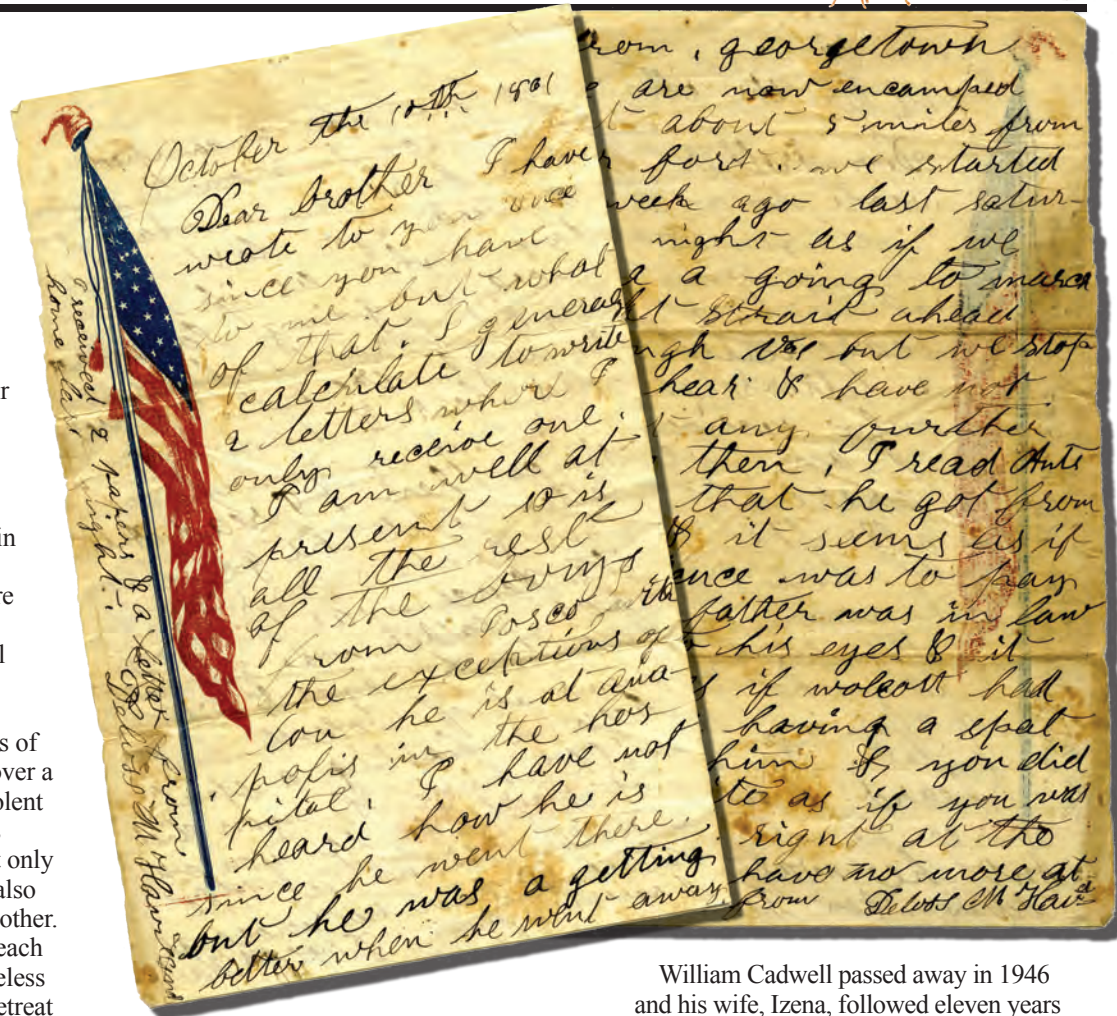 r
in
re
l
s of
over a
olent
t only
also
other.
each
eless
etreat
October the 10th 1861
Dear brother I have
wrote to you once
since you have
to me but what
of that. I general
calculate to write
2 letters where I
only receive one.
I am well at
present so is
all the rest
of the boys
from
the exceptions of
Lou he is at ana-
polis in the hos
pital. I have not
heard how he is
since he went there.
but he was a getting
better when he went away
I received 2 papers & a letter from
home last night.
Delos M Hav
rom, georgetown
are now encamped
t about 5 miles from
fort. we started
week ago last satur-
night as if we
a going to march
ht strait ahead
ugh but we stop
hear & have not
any further
then, I read
that he got from
& it seems as if
ence was to pay
father was in law
his eyes & it
s if wolcott had
having a spat
him & you did
to as if you was
right at the
have no more at
from Delos M Hav
William Cadwell passed away in 1946
and his wife, Izena, followed eleven years